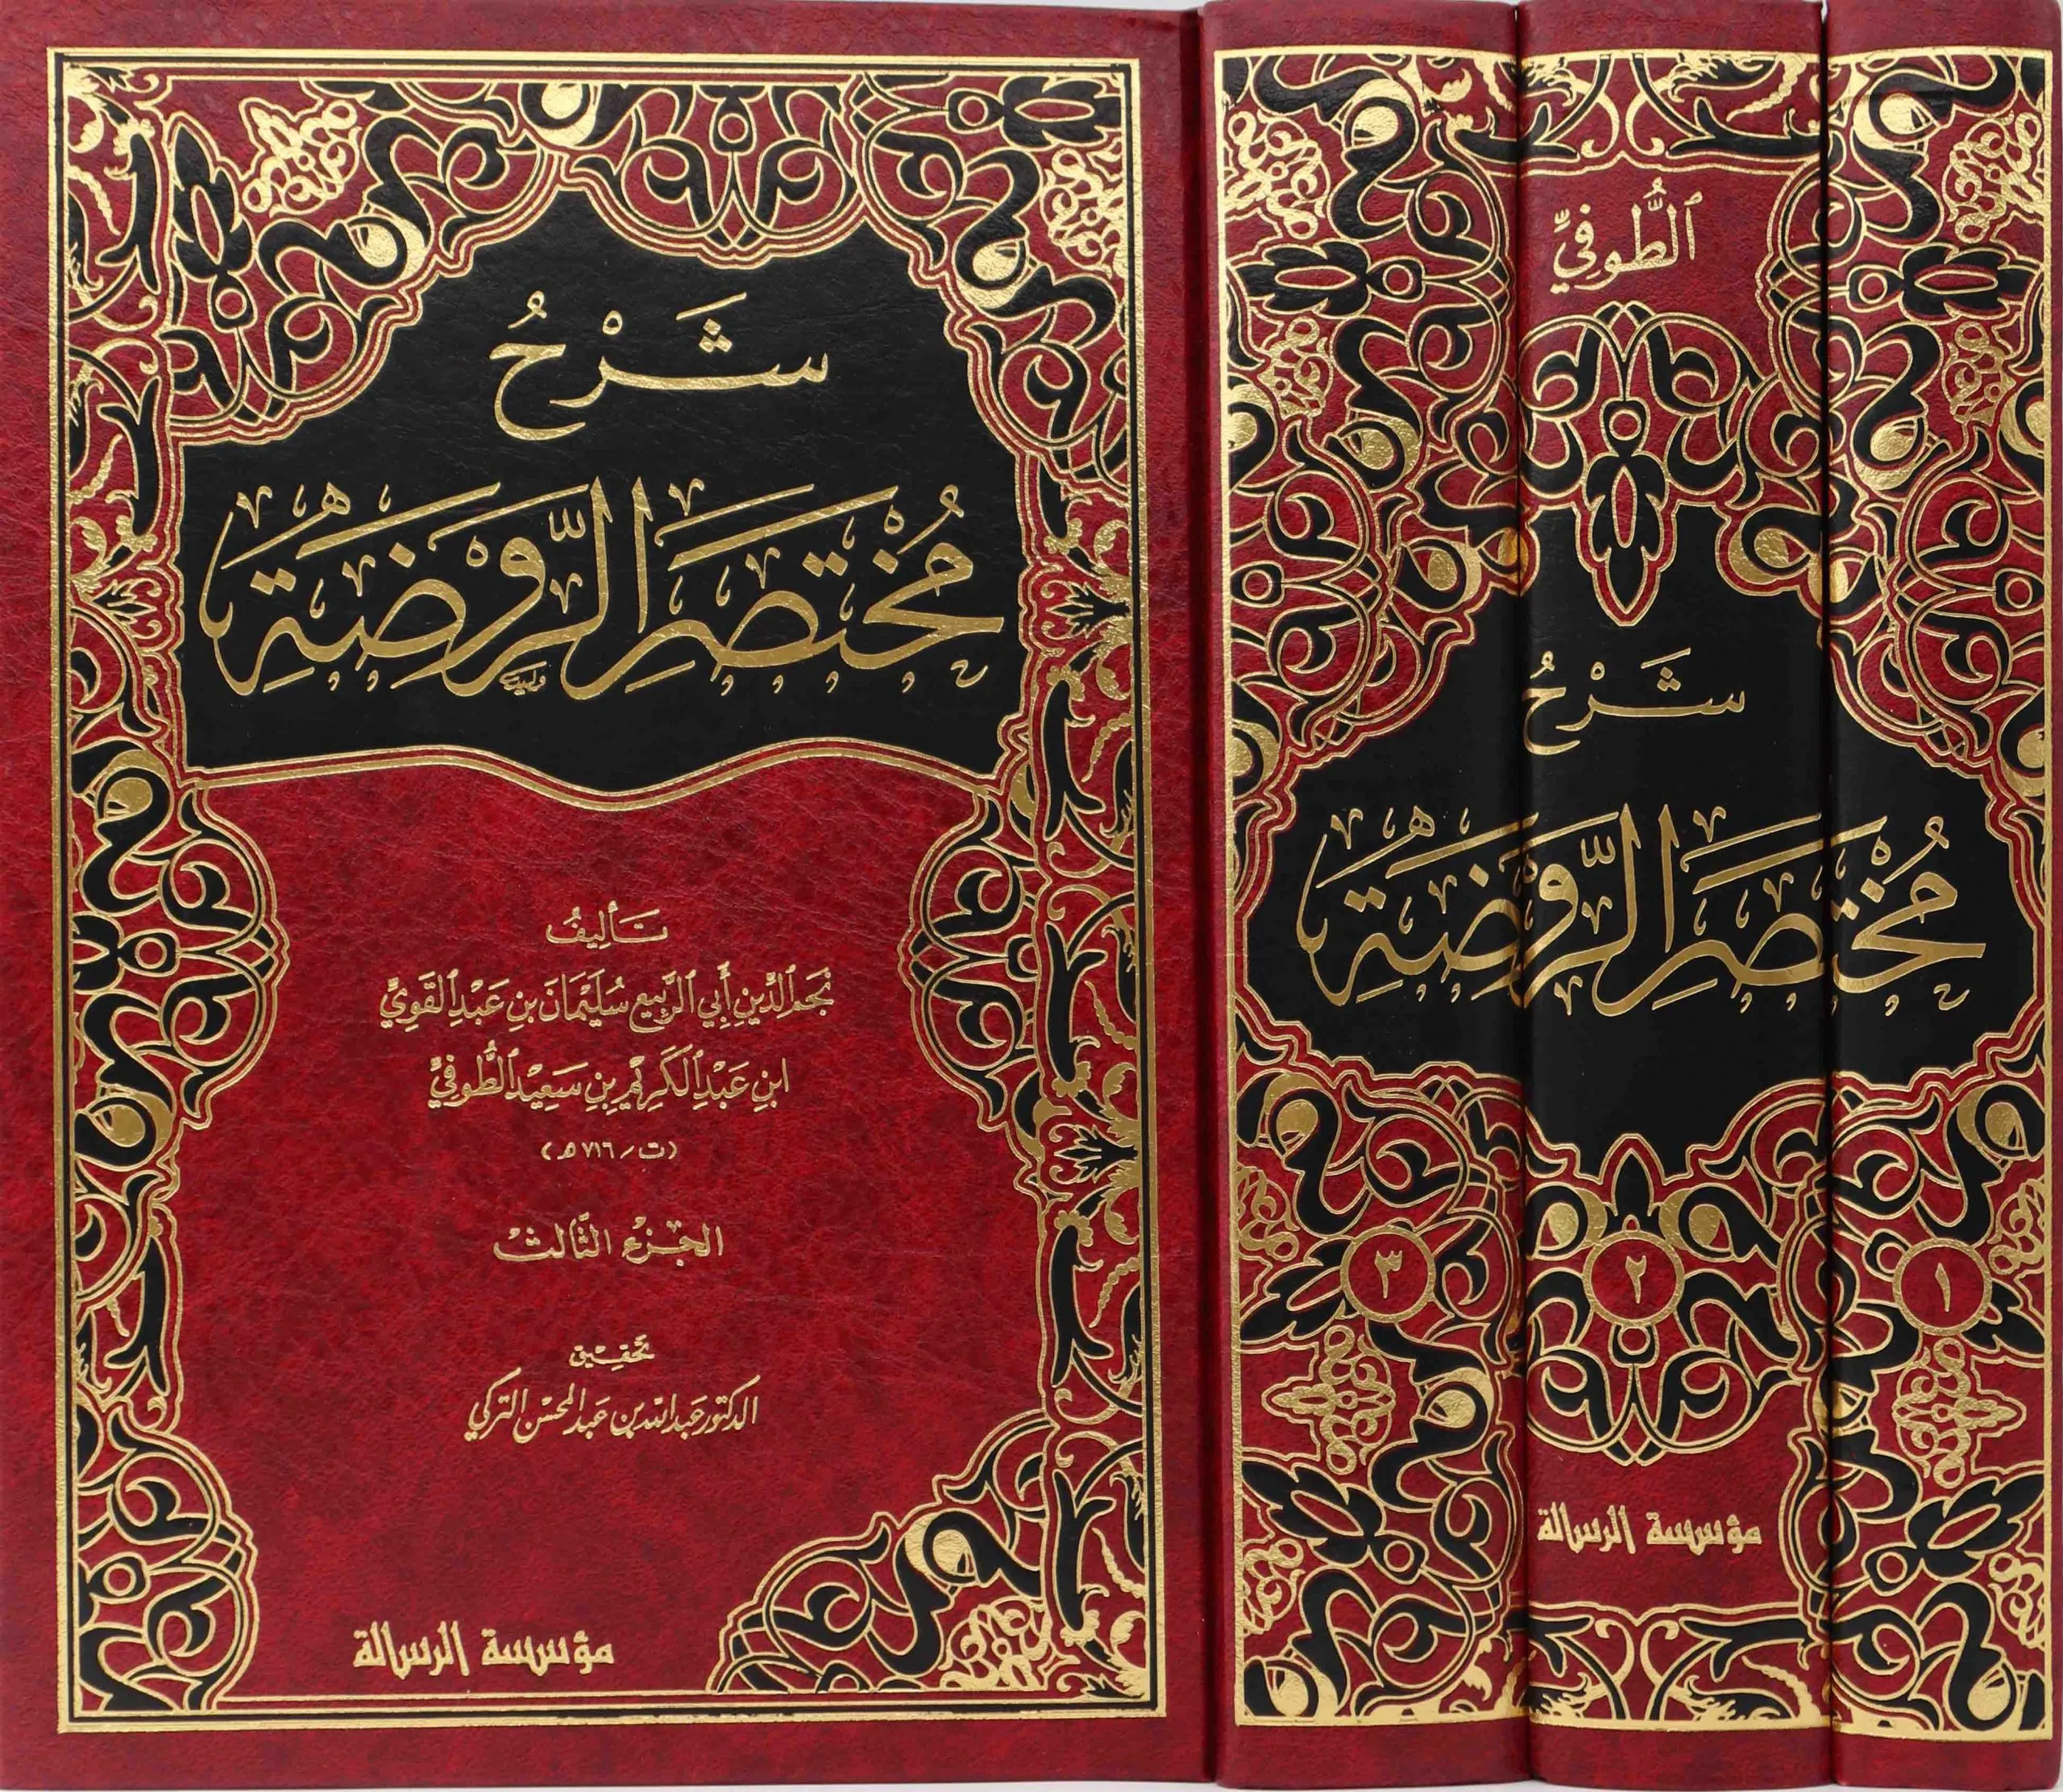 شَرْحُ
مُخْتَصَرِ الرَّوْضَةِ
تَأليفُ
نَجْمِ الدِّينِ أَبِي الرَّبِيعِ سُلَيْمَانَ بنِ عَبْدِ القَوِيِّ
ابنِ عَبْدِ الكَرِيمِ بنِ سَعِيدٍ الطُّوفِيِّ
(ت/ ٧١٦ هـ)
الجزء الثَّالث
تحقيق
الدكتور عبد الله بن عبد المحسن التركي
مؤسسة الرسالة
الطُّوفِيِّ
شَرْحُ
مُخْتَصَرِ الرَّوْضَةِ
١
٢
٣
مؤسسة الرسالة